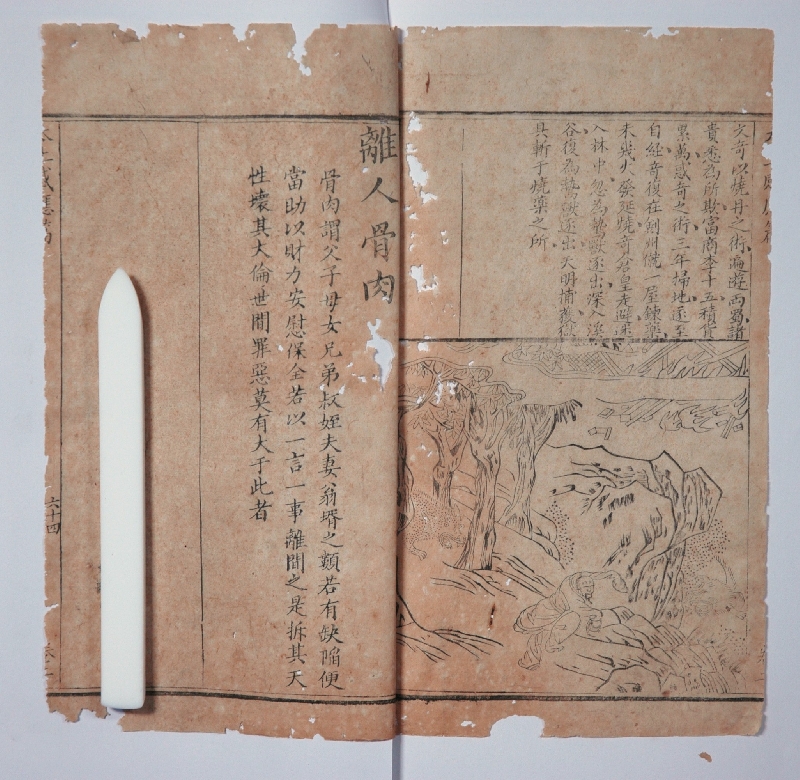 文奇以燒丹之術遍遊兩蜀諸
貴悉為所欺富商李十五積貨
累萬惑奇之術三年掃地遂至
自經奇復在劍州僦一屋鍊藥
未幾火發延燒奇倉皇走避逐
入林中忽為摯獸逐出深入溪
谷復為摯獸逐出天明捕獲
具斬于燒藥之所
離人骨肉
骨肉謂父子母女兄弟叔姪夫妻翁壻之類若有缺陷便
當助以財力安慰保全若以一言一事離間之是拆其天
性壞其大倫世間罪惡莫有大于此者
六十四